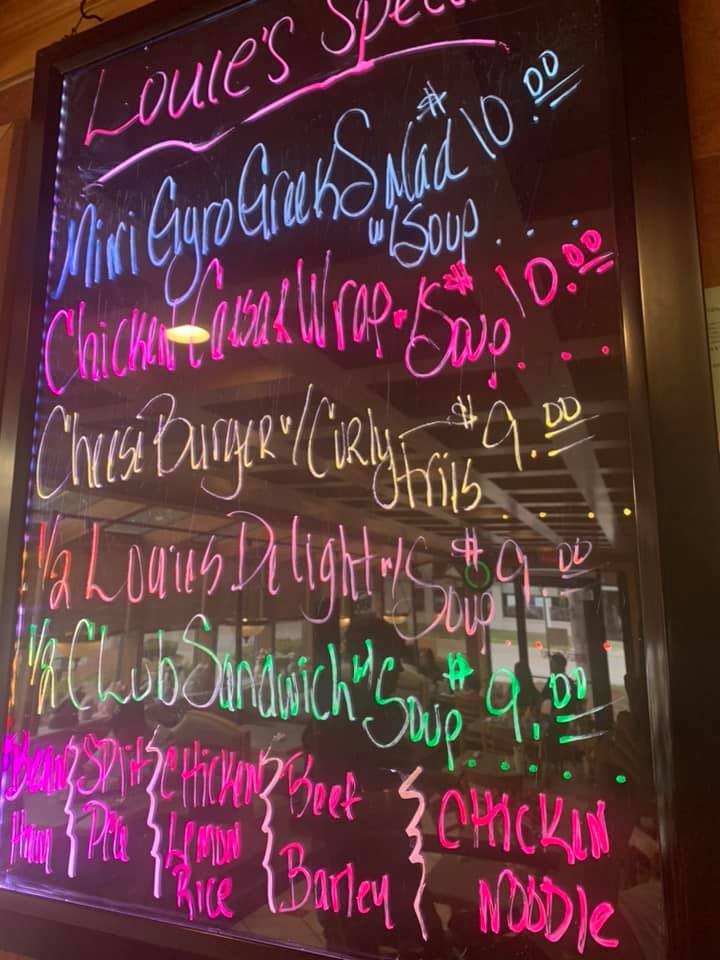 Louie's Spec
Mini Gyro Greek Salad $10.00
w/ Soup....
Chicken Caesar Wrap w/ Soup $10.00
....
Cheese Burger w/ Curly Fries $9.00
1/2 Louies Delight w/ Soup $9.00
1/2 Club Sandwich w/ Soup $9.00
Bean Ham
Split Pea
Chicken Lemon Rice
Beef Barley
Chicken Noodle